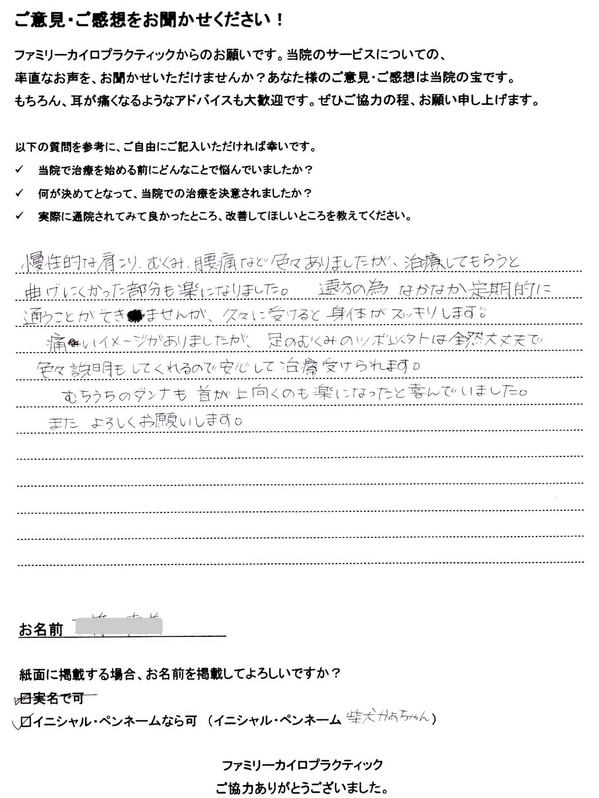 ご意見・ご感想をお聞かせください！
ファミリーカイロプラクティックからのお願いです。当院のサービスについての、
率直なお声を、お聞かせいただけませんか？あなた様のご意見・ご感想は当院の宝です。
もちろん、耳が痛くなるようなアドバイスも大歓迎です。ぜひご協力の程、お願い申し上げます。
以下の質問を参考に、ご自由にご記入いただければ幸いです。
✓ 当院で治療を始める前にどんなことで悩んでいましたか？
✓ 何が決めてとなって、当院での治療を決意されましたか？
✓ 実際に通院されてみて良かったところ、改善してほしいところを教えてください。
慢性的な肩こり、むくみ、腰痛など色々ありましたが、治療してもらうと
曲げにくかった部分も楽になりました。 遠方の為 なかなか定期的に
通うことができませんが、久々に受けると身体がスッキリします。
痛いイメージがありましたが、足のむくみのツボ以外は全然大丈夫で
色々説明もしてくれるので安心して治療受けられます。
むちうちのダンナも 首が上向くのも楽になったと喜んでいました。
また よろしくお願いします。
お名前
紙面に掲載する場合、お名前を掲載してよろしいですか？
□実名で可
□イニシャル・ペンネームなら可 （イニシャル・ペンネーム 柴犬かあちゃん）
ファミリーカイロプラクティック
ご協力ありがとうございました。